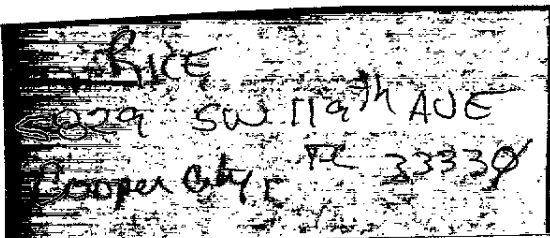 RICE
5829 SW 119th AVE
Cooper City, FL 33330